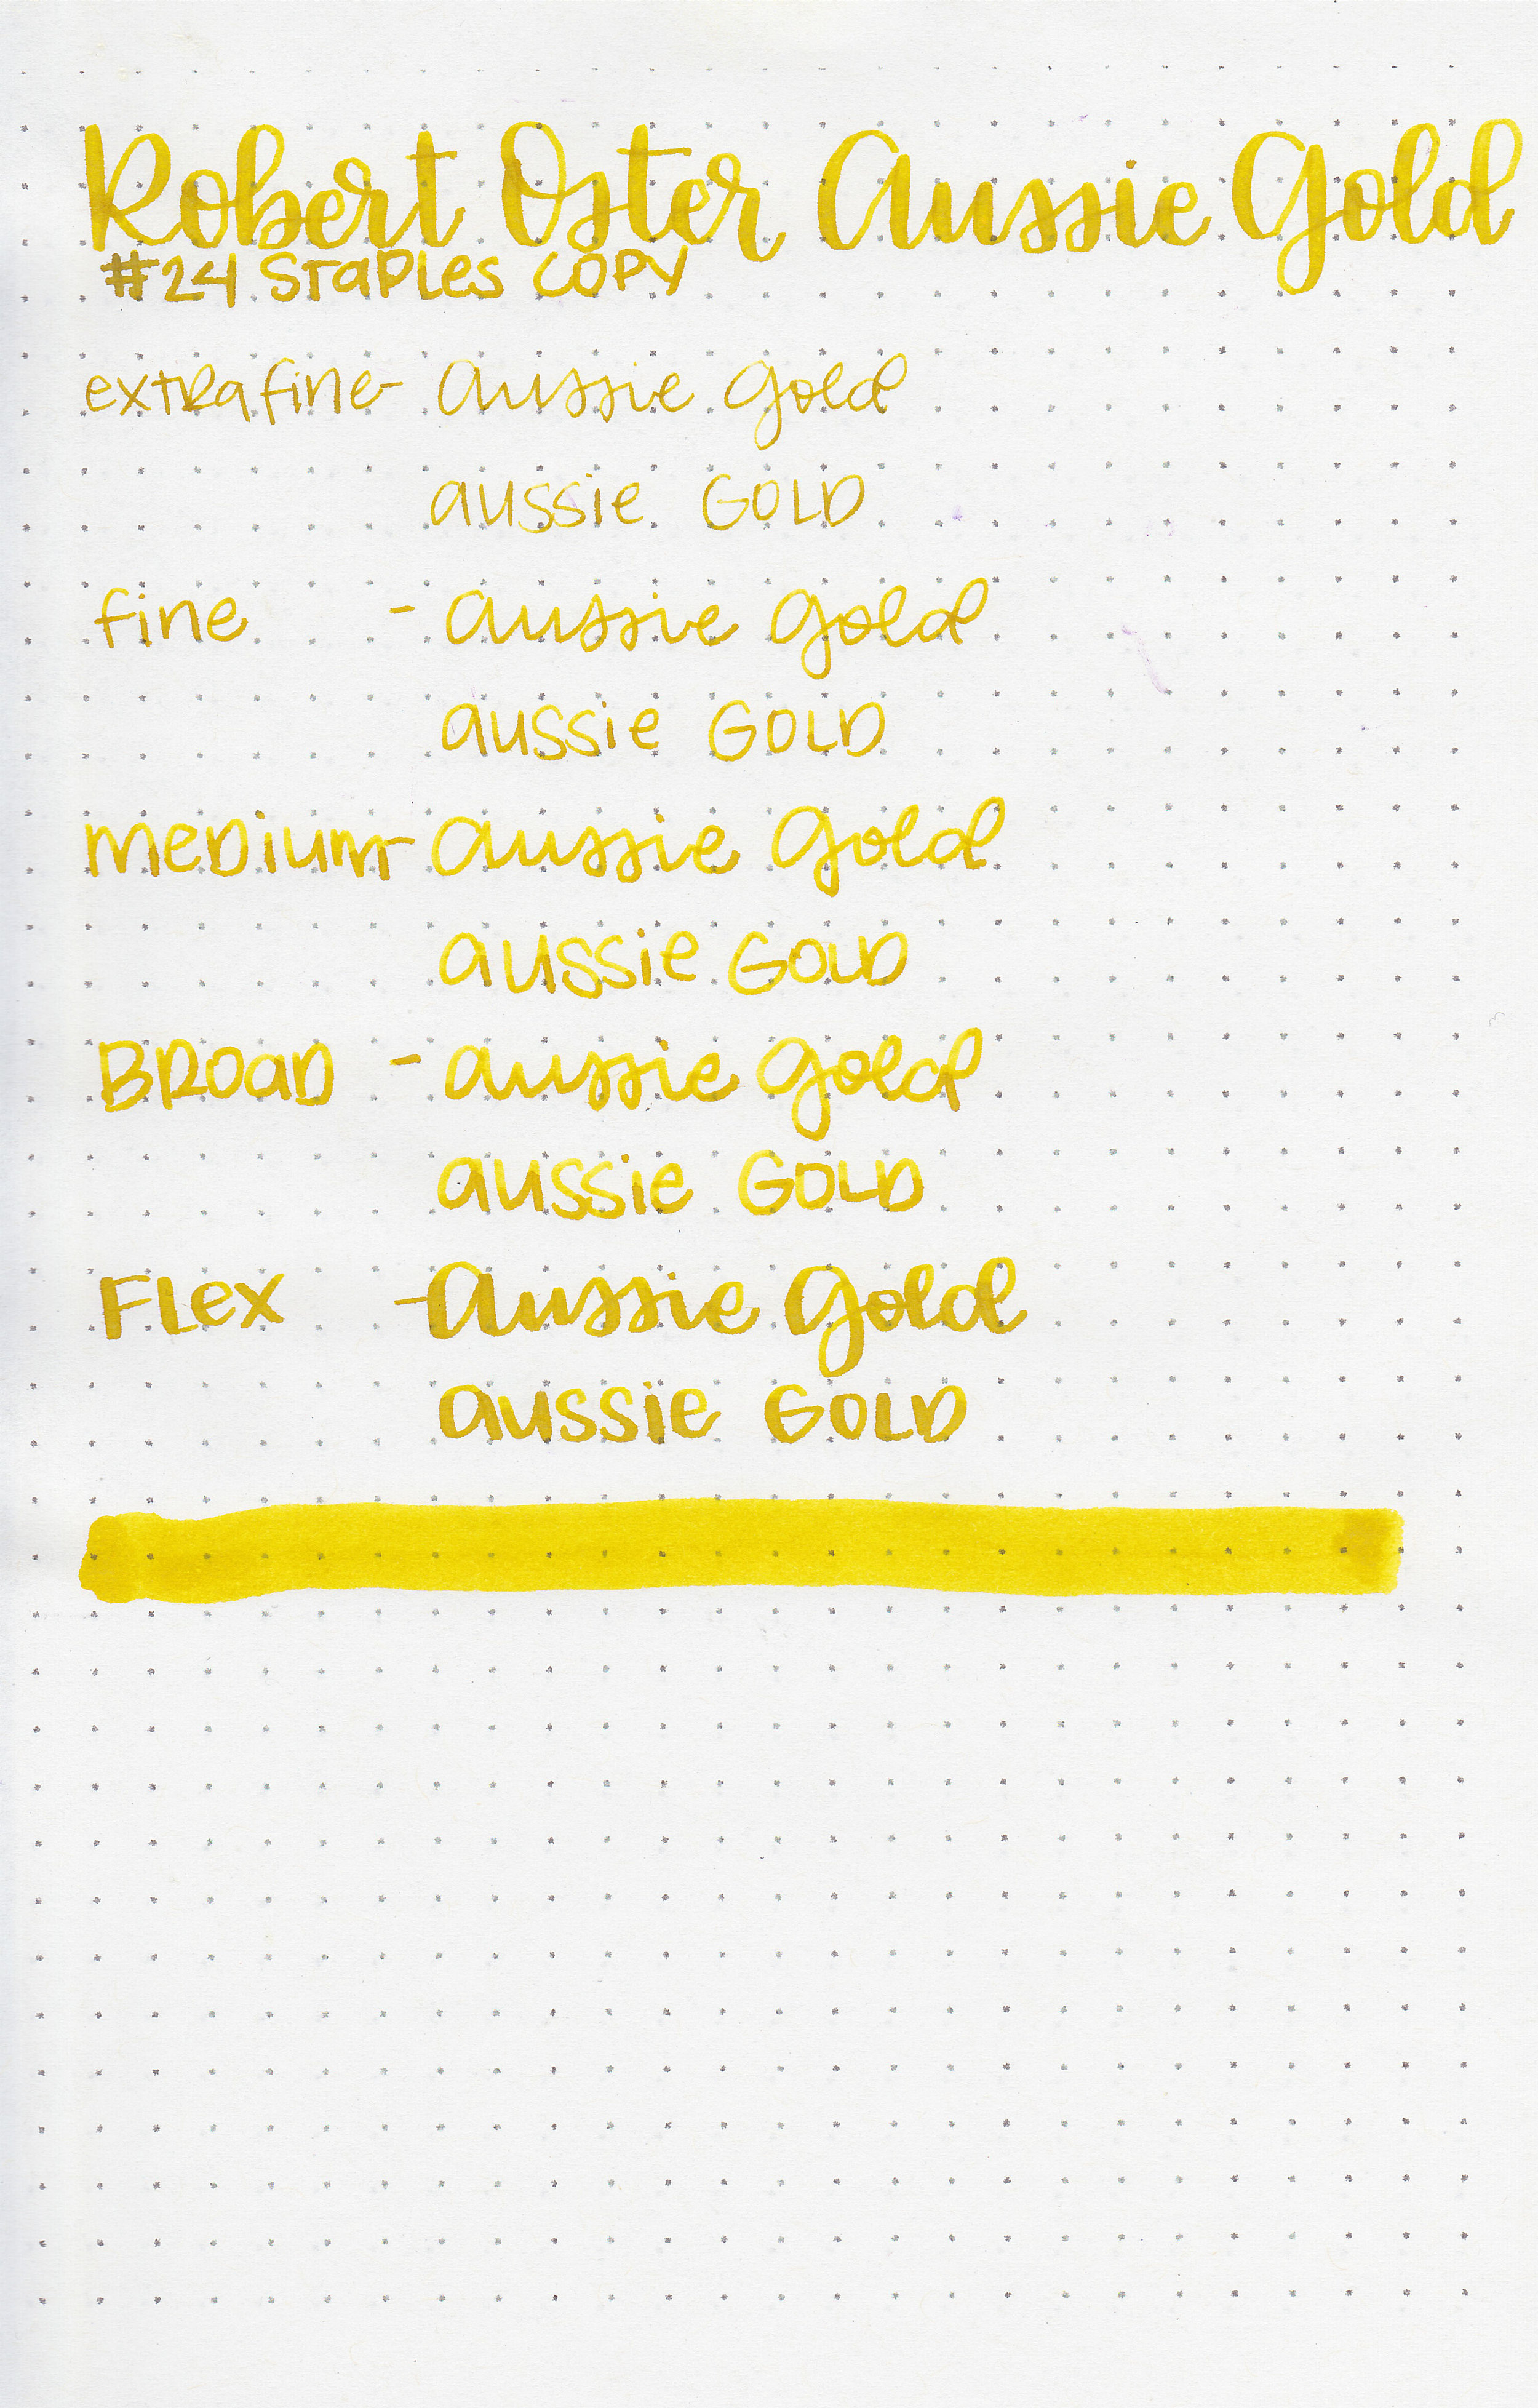 Robert Oster Aussie Gold
#24 Staples Copy
extra fine - Aussie Gold
aussie GOLD
fine - Aussie Gold
aussie GOLD
meDium - Aussie Gold
aussie GOLD
BROaD - Aussie Gold
aussie GOLD
FLex - Aussie Gold
aussie GOLD